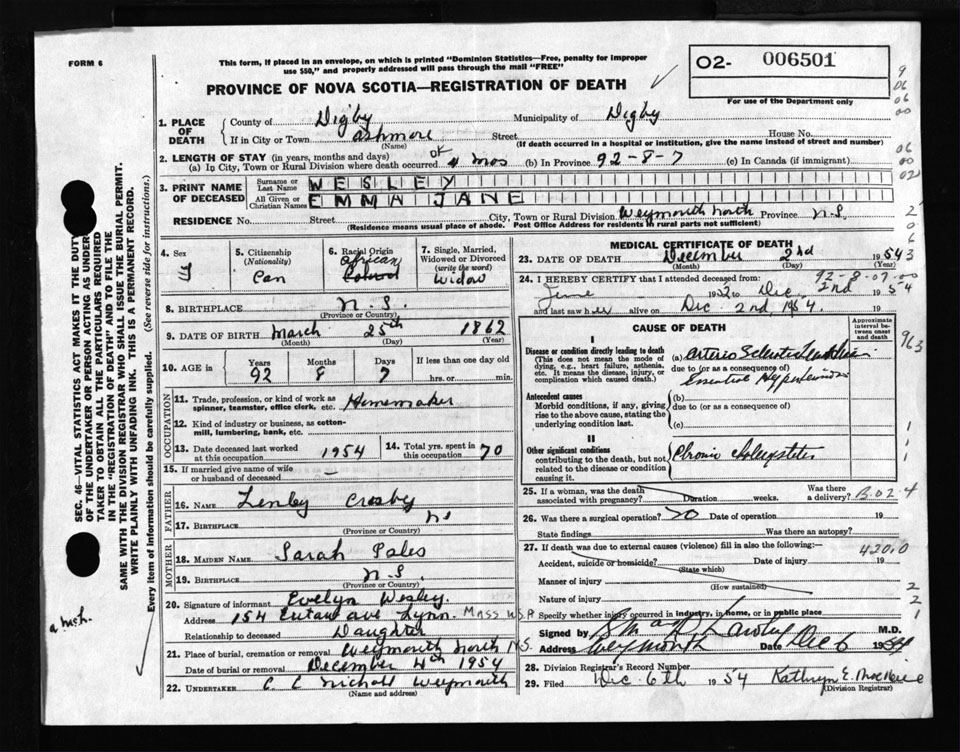 FORM 6
This form, if placed in an envelope, on which is printed "Dominion Statistics—Free, penalty for improper
use $50," and properly addressed will pass through the mail "FREE"
O2- 006501
For use of the Department only
PROVINCE OF NOVA SCOTIA—REGISTRATION OF DEATH
1. PLACE OF DEATH
County of Digby Municipality of Digby
If in City or Town Ashmore Street House No.
(Name) (If death occurred in a hospital or institution, give the name instead of street and number)
2. LENGTH OF STAY (in years, months and days)
(a) In City, Town or Rural Division where death occurred 4 mos (b) In Province 92-8-7 (c) In Canada (if immigrant)
3. PRINT NAME OF DECEASED
Surname or Last Name WESLEY
All Given or Christian Names EMMA JANE
RESIDENCE No. Street City, Town or Rural Division Weymouth North Province N.S.
(Residence means usual place of abode. Post Office Address for residents in rural parts not sufficient)
4. Sex F
5. Citizenship (Nationality) Can
6. Racial Origin African
7. Single, Married, Widowed or Divorced (write the word) Widow
8. BIRTHPLACE N.S.
(Province or Country)
9. DATE OF BIRTH March 25th 1862
(Month) (Day) (Year)
10. AGE in Years 92 Months 8 Days 7 If less than one day old hrs. or min.
OCCUPATION
11. Trade, profession, or kind of work as spinner, teamster, office clerk, etc. Homemaker
12. Kind of industry or business, as cotton-mill, lumbering, bank, etc.
13. Date deceased last worked at this occupation 1954
14. Total yrs. spent in this occupation 70
15. If married give name of wife or husband of deceased –
FATHER
16. NAME Lenley Crosby
17. BIRTHPLACE NS
(Province or Country)
MOTHER
18. MAIDEN NAME Sarah Pales
19. BIRTHPLACE N.S.
(Province or Country)
20. Signature of informant Evelyn Wesley.
Address 154 Eutaw ave Lynn. Mass U.S.A
Relationship to deceased Daughter
21. Place of burial, cremation or removal Weymouth North N.S.
Date of burial or removal December 4th 1954
22. UNDERTAKER C C Nichols Weymouth
(Name and address)
MEDICAL CERTIFICATE OF DEATH
23. DATE OF DEATH December 2nd 1954 3
(Month) (Day) (Year)
92-8-07-00
24. I HEREBY CERTIFY that I attended deceased from:
June 1952 to Dec 2nd 1954
and last saw her alive on Dec 2nd, 1954. 19
CAUSE OF DEATH
Approximate interval between onset and death
I
Disease or condition directly leading to death
(This does not mean the mode of dying, e.g., heart failure, asthenia, etc. It means the disease, injury, or complication which caused death.)
(a) Arterio Sclerotic
due to (or as a consequence of)
Essential Hypertension
Antecedent causes
Morbid conditions, if any, giving rise to the above cause, stating the underlying condition last.
(b)
due to (or as a consequence of)
(c)
II
Other significant conditions
contributing to the death, but not related to the disease or condition causing it.
Chronic
963
25. If a woman, was the death associated with pregnancy? Duration weeks. Was there a delivery? B.02.4
26. Was there a surgical operation? no Date of operation 19
State findings Was there an autopsy?
27. If death was due to external causes (violence) fill in also the following:— 420.0
Accident, suicide or homicide? Date of injury 19
(State which)
Manner of injury
(How sustained)
Nature of injury
Specify whether injury occurred in industry, in home, or in public place
Signed by M.D.
Address Weymouth Date Dec 6 1954
28. Division Registrar's Record Number
29. Filed Dec. 6th 1954 Kathryn E.
(Division Registrar)
SEC. 46—VITAL STATISTICS ACT MAKES IT THE DUTY
OF THE UNDERTAKER OR PERSON ACTING AS UNDER-
TAKER TO OBTAIN ALL THE PARTICULARS REQUIRED
IN THE "REGISTRATION OF DEATH" AND TO FILE THE
SAME WITH THE DIVISION REGISTRAR WHO SHALL ISSUE THE BURIAL PERMIT.
WRITE PLAINLY WITH UNFADING INK. THIS IS A PERMANENT RECORD.
Every item of information should be carefully supplied. (See reverse side for instructions.)